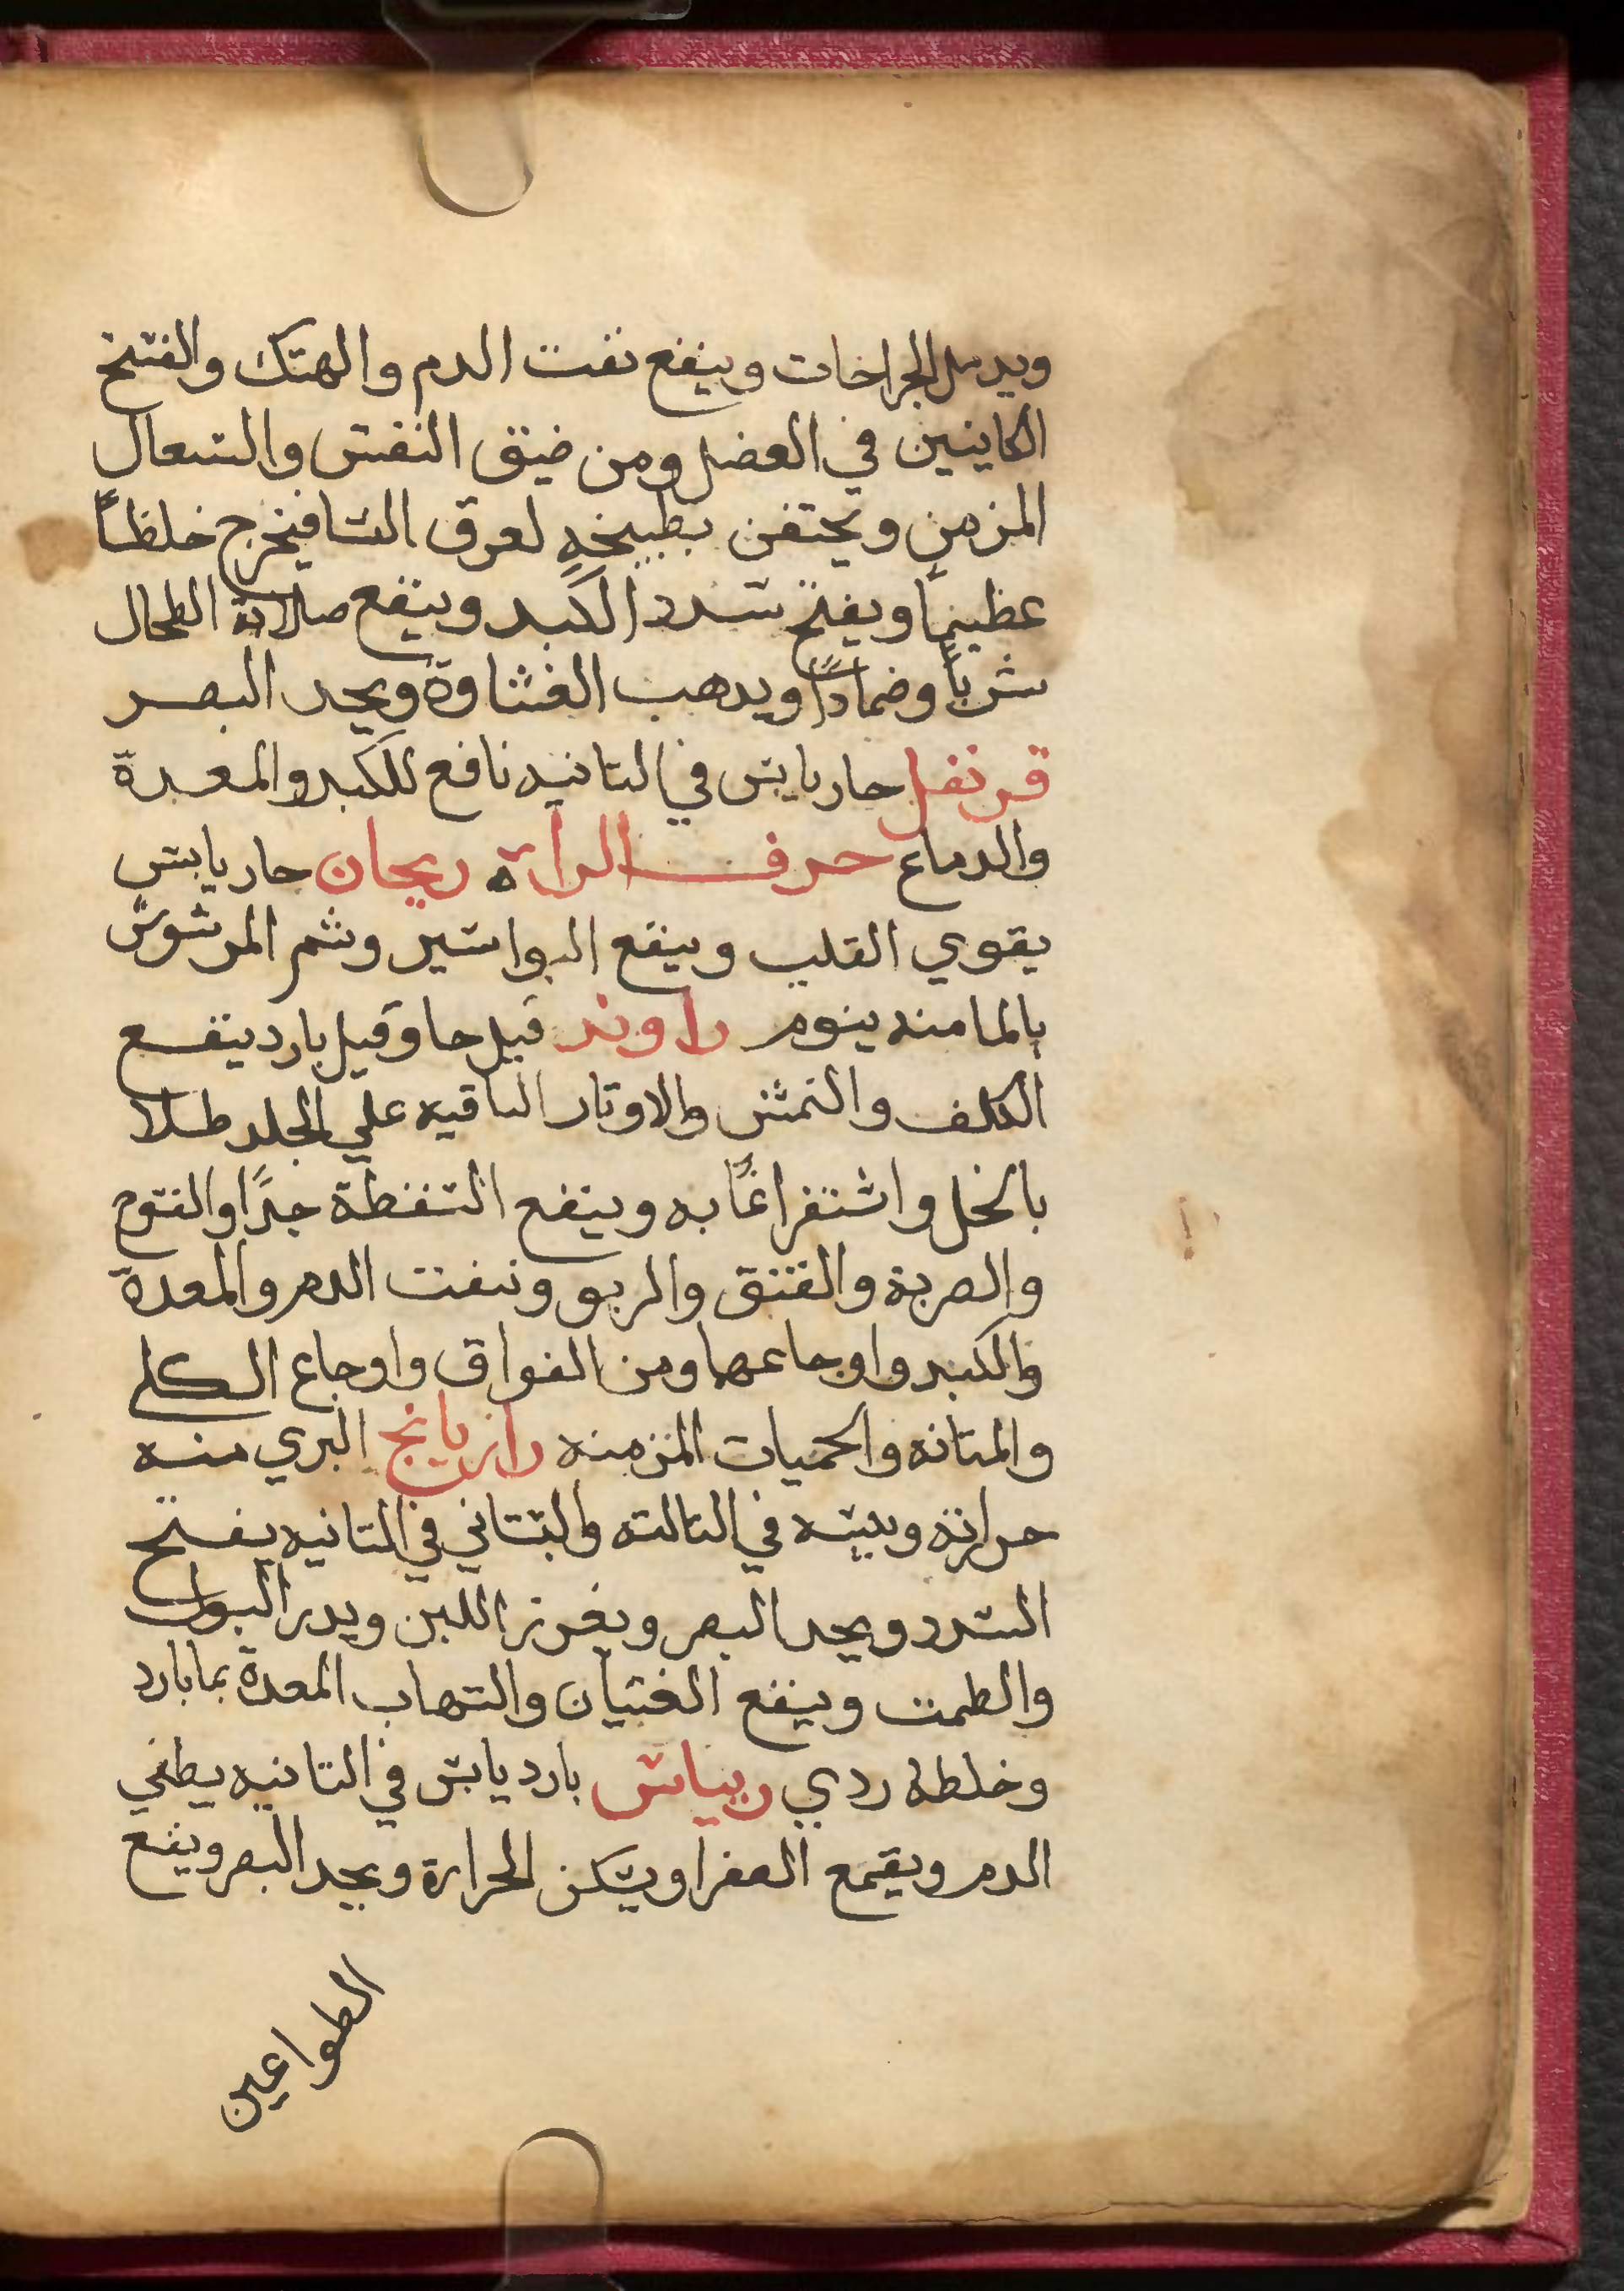 ويدمل الجراحات وينفع نفت الدم والهتك والفتخ
الكاينين في العضل ومن ضيق النفس والسعال
المزمن ويحتقن بطبيخه لعرق النسا فيخرج خلطاً
عظيماً ويفتح سدد الكبد وينفع صلابة الطحال
شرباً وضماداً ويدهب الغشاوة ويحد البصر
قرنفل حار يابس في التانيه نافع للكبد والمعدة
والدماغ حرف الراة ريحان حار يابس
يقوي القلب وينفع البواسير وشم المرشوش
بالما منه ينوم راوند قيل حا وقيل بارد ينفع
الكلف والنمش والاوتار الباقيه علي الجلد طلا
بالخل واستفراغاً به وينفع السقطة جداً والفتوح
والضربة والفتق والربو ونفت الدم والمعدة
والكبد واوجاعها ومن الفواق واوجاع الكلي
والمتانه والحميات المزمنه رازيانج البري منه
حرارته ويبسه في التالته والبستاني في التانيه يفتح
السدد ويحد البصر ويغزر اللبن ويدر البول
والطمت وينفع الغتيان والتهاب المعدة بما بارد
وخلطه ردي ريباس بارد يابس في التانيه يطفي
الدم ويقمع الصفرا ويسكن الحرارة ويحد البصر وينفع
الطواعين